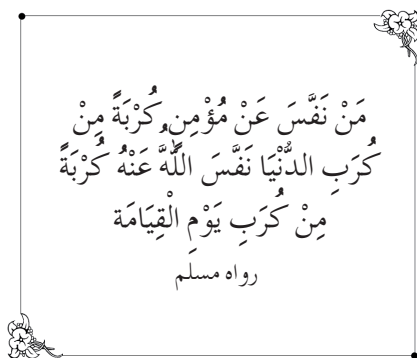 مَنْ نَفَّسَ عَنْ مُؤْمِنٍ كُرْبَةً مِنْ
كُرَبِ الدُّنْيَا نَفَّسَ اللَّهُ عَنْهُ كُرْبَةً
مِنْ كُرَبِ يَوْمِ الْقِيَامَة
رواه مسلم